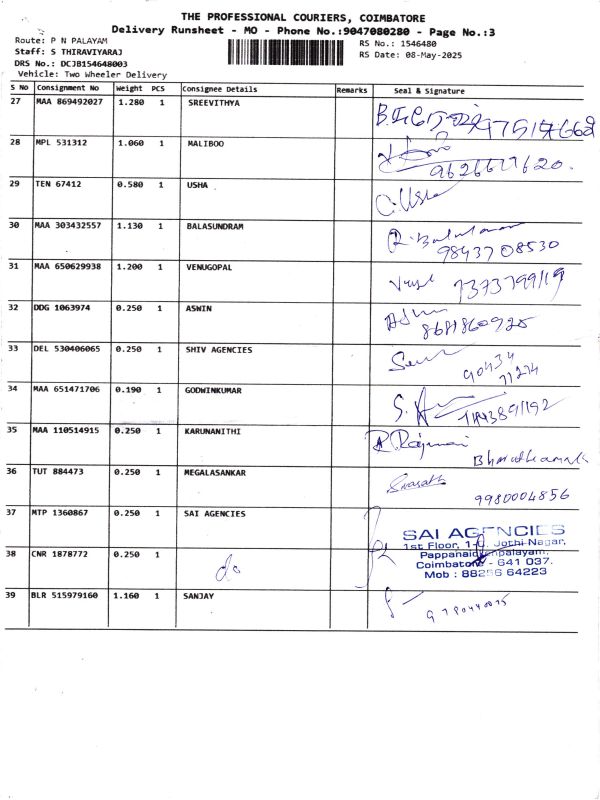 THE PROFESSIONAL COURIERS, COIMBATORE
Delivery Runsheet - MO - Phone No.:9047080280 - Page No.:3
Route: P N PALAYAM
Staff: S THIRAVIYARAJ
DRS No.: DCJB154648003
Vehicle: Two Wheeler Delivery
RS No.: 1546480
RS Date: 08-May-2025
S No Consignment No Weight PCS Consignee Details Remarks Seal & Signature
27 MAA 869492027 1.280 1 SREEVITHYA
28 MPL 531312 1.060 1 MALIBOO
29 TEN 67412 0.580 1 USHA C. Usha
30 MAA 303432557 1.130 1 BALASUNDRAM
9843708530
31 MAA 650629938 1.200 1 VENUGOPAL
32 DDG 1063974 0.250 1 ASWIN
33 DEL 530406065 0.250 1 SHIV AGENCIES
90434
71274
34 MAA 651471706 0.190 1 GODWINKUMAR
35 MAA 110514915 0.250 1 KARUNANITHI
36 TUT 884473 0.250 1 MEGALASANKAR
9980004856
37 MTP 1360867 0.250 1 SAI AGENCIES
SAI AGENCIES
1st Floor, Jothi Nagar,
Coimbatore - 641 037.
Mob : 88256 64223
38 CNR 1878772 0.250 1 do
39 BLR 515979160 1.160 1 SANJAY